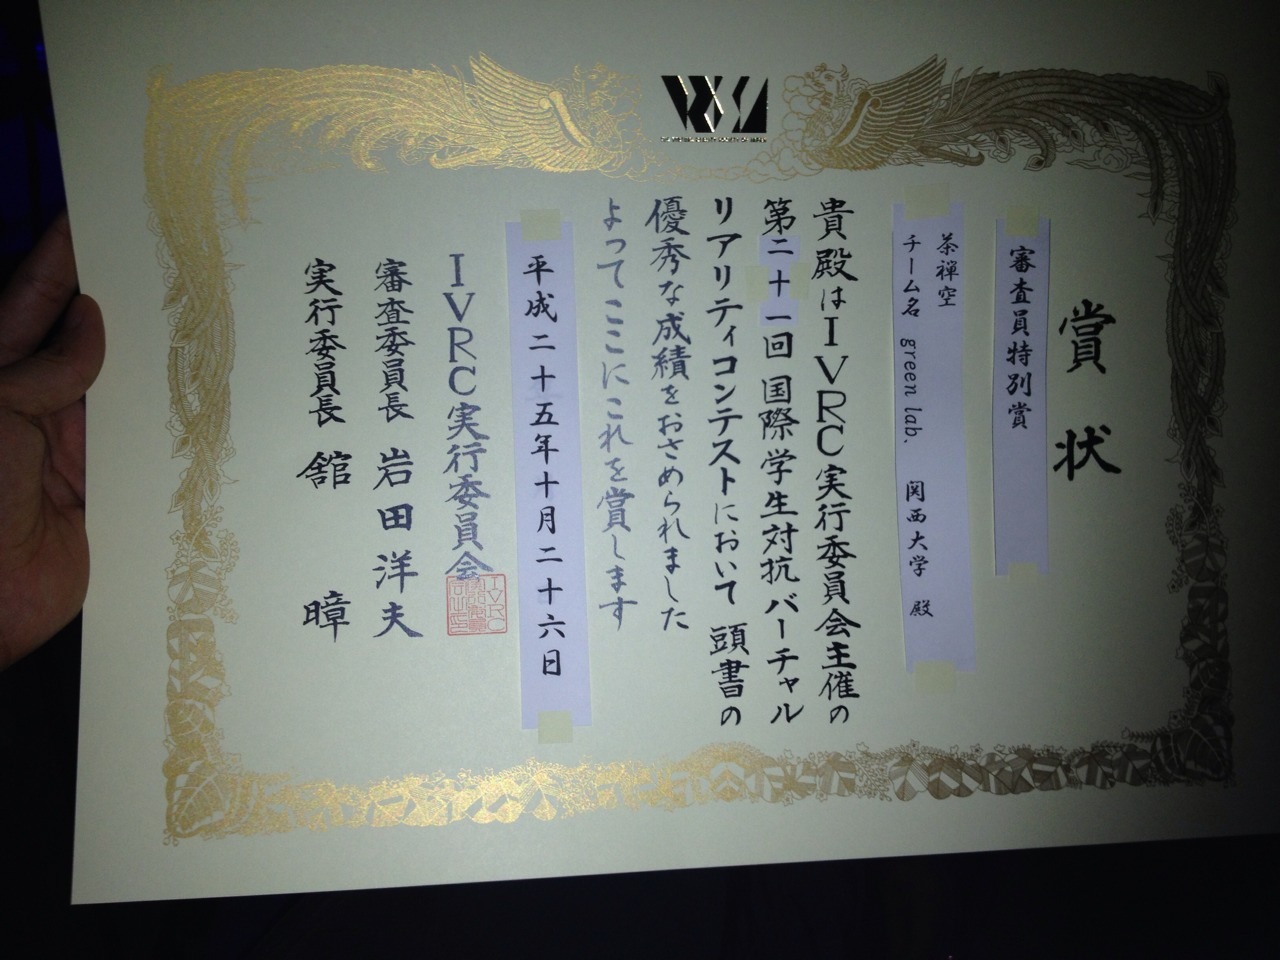 賞状
審査員特別賞
茶禅空
チーム名 green lab. 関西大学 殿
貴殿はIVRC実行委員会主催の
第二十一回 国際学生対抗バーチャル
リアリティコンテストにおいて 頭書の
優秀な成績をおさめられました
よってここにこれを賞します
平成二十五年十月二十六日
IVRC実行委員会
審査委員長 岩田洋夫
実行委員長 舘 暲